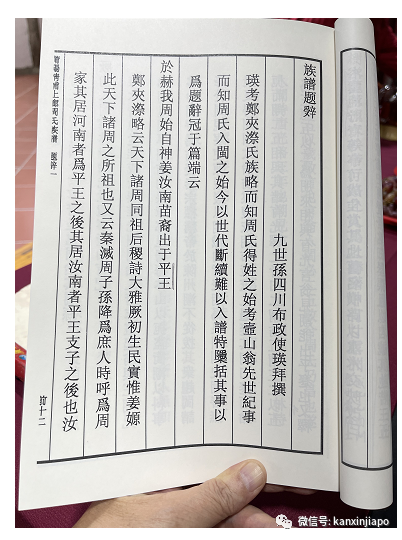 族譜題辭
九世孫四川布政使瑛拜撰
瑛考鄭夾漈氏族略而知周氏得姓之始考壺山翁先世紀事
而知周氏入閩之始今以世代斷續難以入譜特檃括其事以
爲題辭冠于篇端云
於赫我周始自神姜汝南苗裔出于平王
鄭夾漈略云天下諸周同祖后稷詩大雅厥初生民實惟姜嫄
此天下諸周之所祖也又云秦滅周子孫降爲庶人時呼爲周
家其居河南者爲平王之後其居汝南者平王支子之後也汝
題辭一
微信号: kanxinjiapo